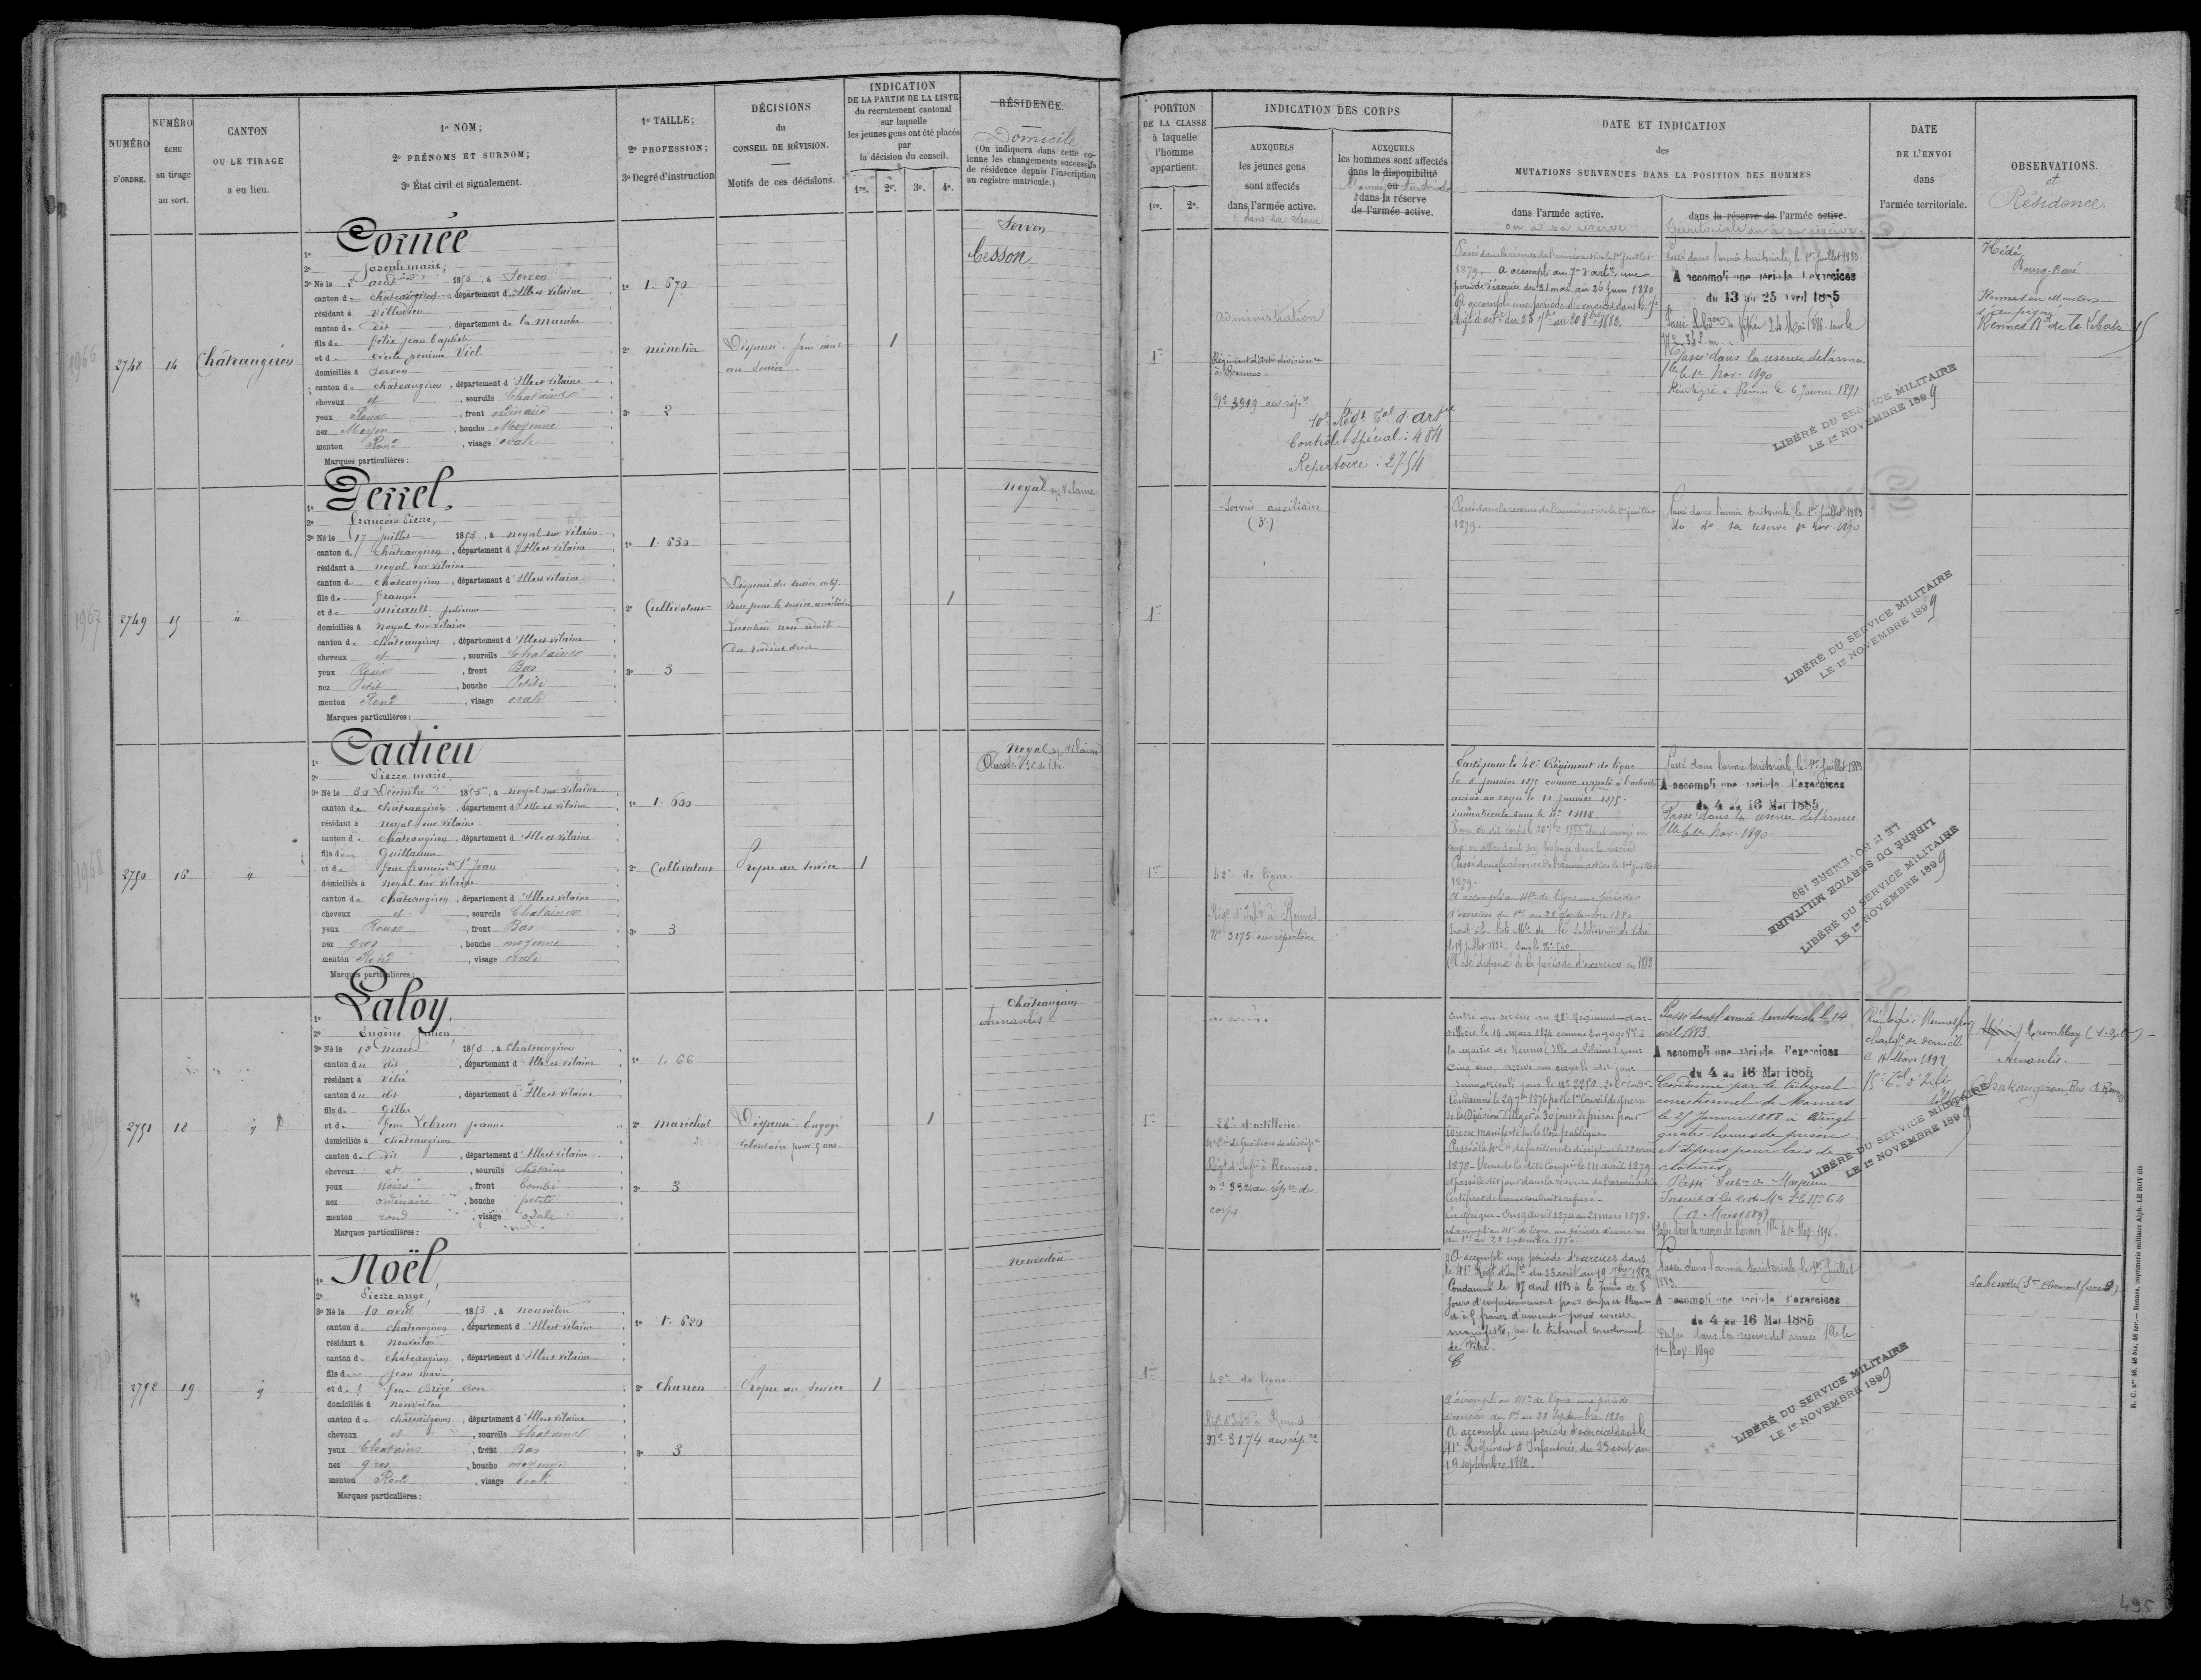 NUMÉRO
D'ORDRE.
NUMÉRO
ÉCHU
au tirage
au sort.
CANTON
OU LE TIRAGE
a eu lieu.
1º NOM;
2º PRÉNOMS ET SURNOM;
3º État civil et signalement.
1º TAILLE;
2º PROFESSION;
3º Degré d'instruction
DÉCISIONS
du
CONSEIL DE RÉVISION.
Motifs de ces décisions.
INDICATION
DE LA PARTIE DE LA LISTE
du recrutement cantonal
sur laquelle
les jeunes gens ont été placés
par
la décision du conseil.
1re. 2e. 3e. 4e.
RÉSIDENCE.
Domicile
(On indiquera dans cette co-
lonne les changements successifs
de résidence depuis l'inscription
au registre matricule.)
PORTION
DE LA CLASSE
à laquelle
l'homme
appartient.
1re. 2e.
INDICATION DES CORPS
AUXQUELS
les jeunes gens
sont affectés
dans l'armée active.
& dans sa réserve
AUXQUELS
les hommes sont affectés
dans la disponibilité
ou
dans la réserve
de l'armée active.
DATE ET INDICATION
des
MUTATIONS SURVENUES DANS LA POSITION DES HOMMES
dans l'armée active.
ou à sa réserve
dans la réserve de l'armée active.
territoriale ou à sa réserve.
DATE
DE L'ENVOI
dans
l'armée territoriale.
OBSERVATIONS.
et
Résidence.
2748 14 Châteaugiron
1º Cornée
2º Joseph marie,
3º Né le août 1853, à Servon
canton de châteaugiron, département d'Ille et vilaine
résidant à Villedieu
canton de dit, département de la manche
fils de felix jean baptiste
et de cécile perrine Viel
domiciliés à Servon
canton de châteaugiron, département d'Ille et vilaine
cheveux et, sourcils Chatains
yeux Roux, front ordinaire
nez Moyen, bouche Moyenne
menton Rond, visage ovale
Marques particulières:
1º 1. 670
2º minotier
3º 2
Dispensé
au service.
1
Servon
Cesson
1re
administration
Régiment d'Artie divisionre
à Rennes.
Nº 3909 au répre
10e Régt Tal d'Artie
Contrôle spécial: 484
Répertoire: 2754
Passé dans la réserve de l'armée active le 1er juillet
1879. A accompli au 7e d'artie, une
période d'exercice du 31 mai au 26 juin 1880
A accompli une période d'exercices dans le 7e
Régt d'artie du 23 7bre au 20 8bre 1882.
Passé dans l'armée territoriale, le 1er Juillet 1883.
A accompli une période d'exercices
du 13 au 25 Avril 1885
Passé dans la réserve de l'armée
Tle le 1er Nov. 1890
Réintégré à Rennes le 6 Janvier 1891
LIBÉRÉ DU SERVICE MILITAIRE
LE 1er NOVEMBRE 1899
Hédé
Bourg-Barré
Rennes Bd de la Liberté 15
2749 15 "
1º Perrel,
2º François Pierre,
3º Né le 17 juillet 1853, à noyal sur vilaine
canton de châteaugiron, département d'Ille et vilaine
résidant à noyal sur vilaine
canton de châteaugiron, département d'Ille et vilaine
fils de françois
et de micault julienne
domiciliés à noyal sur vilaine
canton de châteaugiron, département d'Ille et vilaine
cheveux et, sourcils Chatains
yeux Roux, front Bas
nez Petit, bouche Petite
menton Rond, visage ovale
Marques particulières:
1º 1. 630
2º Cultivateur
3º 3
Dispensé du service actif.
Bon pour le service auxiliaire
Luxation non réduite
1
noyal sr Vilaine
1re
Service auxiliaire
(3e)
Passé dans la réserve de l'armée active le 1er juillet
1879.
Passé dans l'armée territoriale, le 1er Juillet 1883
do do sa réserve 1er Nov. 1890
LIBÉRÉ DU SERVICE MILITAIRE
LE 1er NOVEMBRE 1899
2750 16 "
1º Cadieu
2º Pierre marie,
3º Né le 30 Décembre 1853, à noyal sur vilaine
canton de châteaugiron, département d'Ille et vilaine
résidant à noyal sur vilaine
canton de châteaugiron, département d'Ille et vilaine
fils de Guillaume
et de feue françoise St Jean
domiciliés à noyal sur vilaine
canton de châteaugiron, département d'Ille et vilaine
cheveux et, sourcils Chatains
yeux Roux, front Bas
nez gros, bouche moyenne
menton Rond, visage ovale
Marques particulières:
1º 1. 600
2º Cultivateur
3º 3
Propre au service
1
Noyal sr vilaine
1re
42e de ligne.
Régt d'Infie à Rennes.
Nº 3175 au répertoire
Parti pour le 42e Régiment de ligne
le 8 janvier 1875 comme appelé à l'activité
arrivé au corps le 12 janvier 1875.
immatriculé sous le Nº 15118.
congé en attendant son passage dans la réserve
Passé dans la réserve de l'armée active le 1er juillet
1879.
A accompli au 41e de ligne une période
d'exercices du 1er au 28 septembre 1880
Inscrit à la liste Mle de la Subdivision de Vitré
le 19 Juillet 1882 sous le Nº 540
A été dispensé de la période d'exercices en 1882
Passé dans l'armée territoriale, le 1er Juillet 1883
A accompli une période d'exercices
du 4 au 16 Mai 1885
Passé dans la réserve de l'armée
Tle le 1er Nov. 1890
LIBÉRÉ DU SERVICE MILITAIRE
LE 1er NOVEMBRE 189
LIBÉRÉ DU SERVICE MILITAIRE
LE 1er NOVEMBRE 1899
2751 18 "
1º Laloy,
2º Eugène Julien,
3º Né le 12 mars 1853, à Châteaugiron
canton du dit, département d
résidant à vitré
canton du dit, département d'Ille et vilaine
fils de Gilles
et de feue Lebrun jeanne
domiciliés à châteaugiron
canton de dit, département d'Ille et vilaine
cheveux et, sourcils chatains
yeux noirs, front bombé
nez ordinaire, bouche petite
menton rond, visage ovale
Marques particulières:
1º 1. 66
2º maréchal
3º 3
Dispensé. Engagé
volontaire pour 5 ans.
1
Châteaugiron
Amanlis
1re
28e d'artillerie.
Régt d'Infie à Rennes.
nº 3324 au répre du
corps
Entré au service au 28e Régiment d'ar-
tillerie le 14 mars 1874 comme Engagé Vre à
la mairie de Rennes (Ille et Vilaine) pour
Cinq ans, arrivé au corps le dit jour
immatriculé sous le Nº 2250
Condamné le 29 7bre 1876 par le 1er Conseil de guerre
de la Division d'Alger à 30 jours de prison pour
ivresse manifeste sur la Voie publique.
Passé à la 4e Cie de fusiliers de discipline le 22 mars
1878 - Venu de la dite Compie le 14 avril 1879
et passé le dit jour dans la réserve de l'armée active
Certificat de bonne conduite refusé -
En Afrique - Du 19 avril 1874 au 21 mars 1878.
A accompli au 41e de ligne une période d'exercices
du 1er au 28 septembre 1880
Passé dans l'armée territoriale le 14
avril 1883
A accompli une période d'exercices
du 4 au 16 Mai 1885
Condamné par le tribunal
correctionnel de Mamers
le 25 Janvier 1883 à Vingt
quatre heures de prison
et dépens pour bris de
clotures
Passé Subon de Mayenne
(12 Mars 1889)
Passé dans la réserve de l'armée Tle le 1er Nov. 1890
le 14 Mars 1892
Tremblay
Amanlis.
Chateaugiron, Rue de Rennes
LIBÉRÉ DU SERVICE MILITAIRE
LE 1er NOVEMBRE 1899
2752 19 "
1º Noël,
2º Pierre ange,
3º Né le 10 avril 1853, à nouvoitou
canton de châteaugiron, département d'Ille et vilaine
résidant à nouvoitou
canton de châteaugiron, département d'Ille et vilaine
fils de jean marie
et de feue Brizé
domiciliés à nouvoitou
canton de châteaugiron, département d'Ille et vilaine
cheveux et, sourcils Chatains
yeux Chatains, front Bas
nez gros, bouche moyenne
menton Rond, visage ovale
Marques particulières:
1º 1. 620
2º Charron
3º 3
Propre au service
1
nouvoitou
1re
42e de ligne.
Régt d'Infie à Rennes
Nº 3174 au répre
A accompli une période d'exercices dans
le 41e Régt d'Infie du 23 août au 19 7bre 1882
Condamné le 17 avril 1883 à la peine de 8
jours d'emprisonnement pour coups et blessures
et à 5 francs d'amende pour ivresse
manifeste, par le tribunal correctionnel
de Vitré.
A accompli au 41e de ligne une période
d'exercices du 1er au 28 septembre 1880
A accompli une période d'exercices dans le
41e Régiment d'Infanterie du 23 août au
19 septembre 1882.
Passé dans l'armée territoriale le 1er Juillet
1883.
A accompli une période d'exercices
du 4 au 16 Mai 1885
Passé dans la réserve de l'armée Tle le
1er Nov 1890
LIBÉRÉ DU SERVICE MILITAIRE
LE 1er NOVEMBRE 1899
R. C. nos 46, 46 bis, 46 ter. — Rennes, imprimerie militaire Alph. LE ROY fils
495